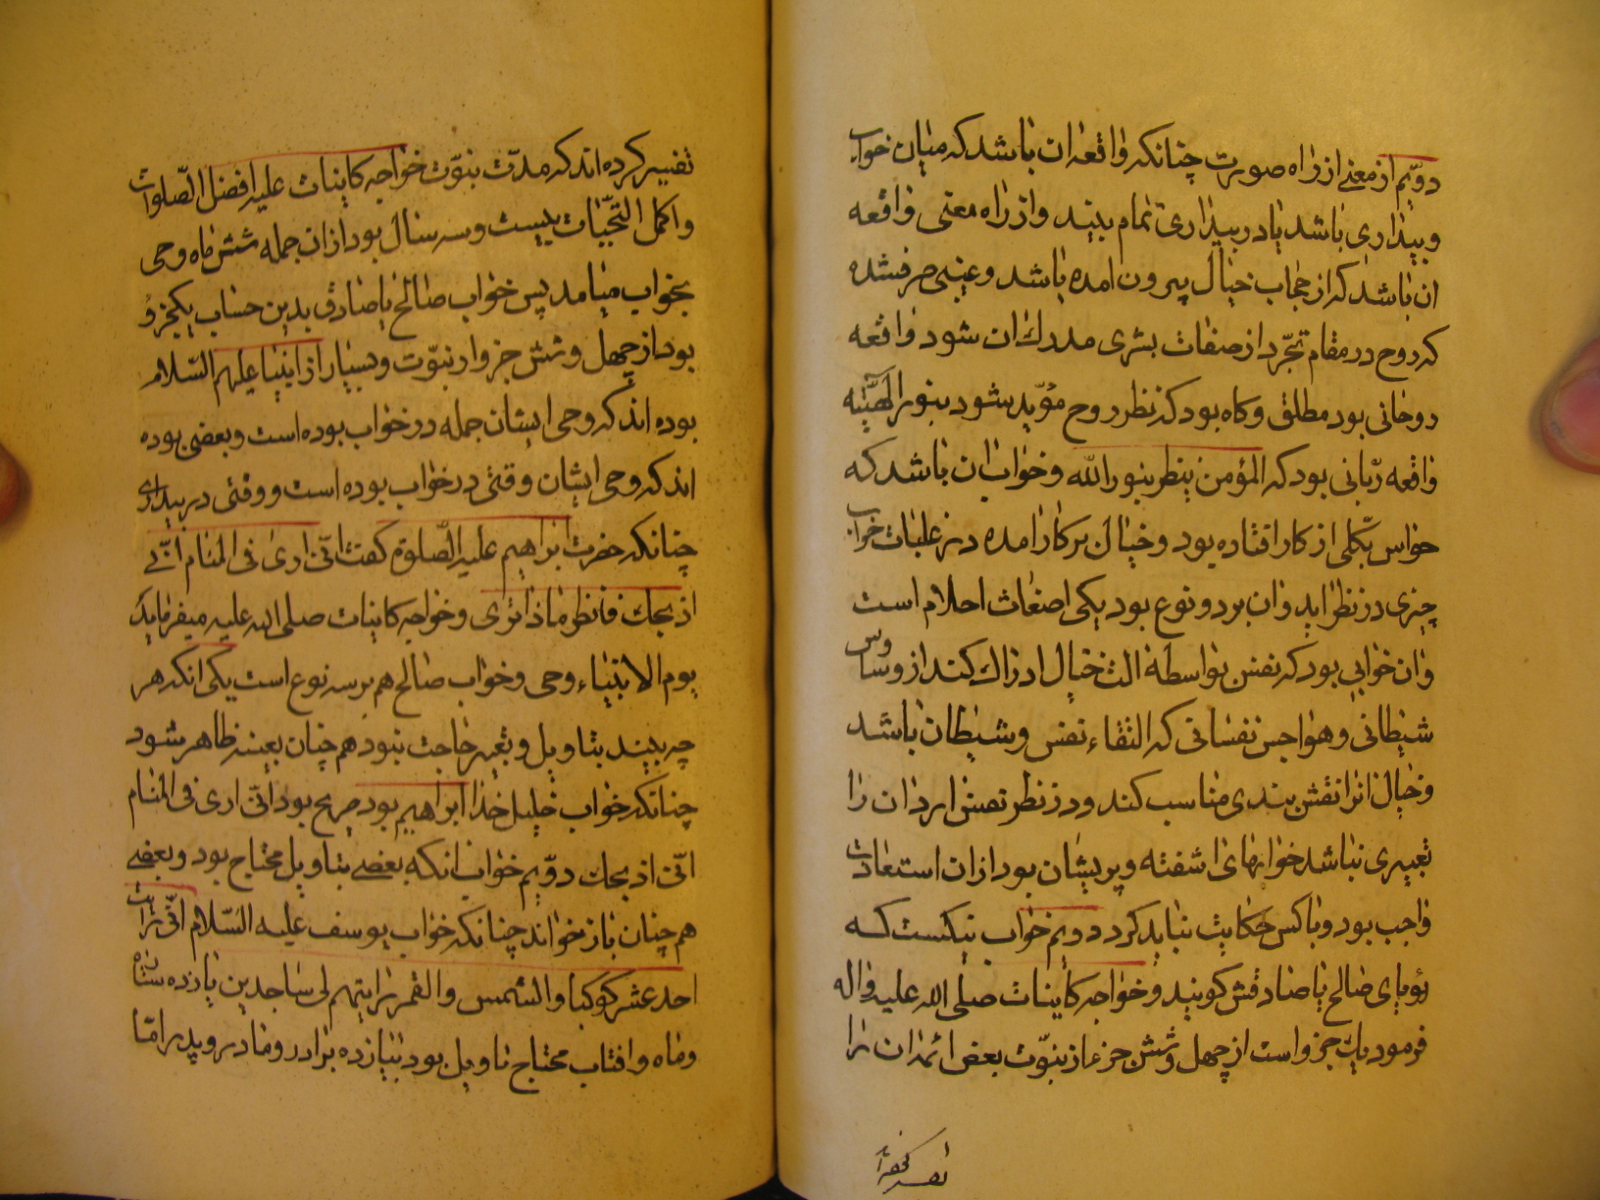 دویم از معنی از راه صورت چنانکه واقعه ان باشد که میان خواب
و بیداری باشد یا در بیداری تمام بیند و از راه معنی واقعه
ان باشد که از حجاب خیال بیرون امده باشد و غیبی صرف شده
که روح در مقام تجرد از صفات بشری مدرک ان شود واقعه
روحانی بود مطلق و کاه بود که نظر روح مؤید شود بنور الهیته
واقعه ربانی بود که المؤمن ینظر بنور الله و خواب ان باشد که
حواس بکلی از کار افتاده بود و خیال بر کار امده در غلبات خواب
چیزی در نظر اید و ان بر دو نوع بود یکی اضغاث احلام است
و ان خوابی بود که نفس بواسطۀ الت خیال ادراک کند از وساوس
شیطانی و هواجس نفسانی که القاء نفس و شیطان باشد
و خیال انرا نقش بندی مناسب کند و در نظر نفس ارد ان را
تعبیری نباشد خوابهای اشفته و پریشان بود از ان استعاذت
واجب بود و با کس حکایت نباید کرد دویم خواب نیکست که
رویای صالح یا صادقش کویند و خواجه کاینات صلی الله علیه و اله
فرمود یک جزو است از چهل و شش جزء از نبوّت بعض ائمه ان را
تفسیر کرده اند که مدّت نبوّت خواجه کاینات علیه افضل الصّلوات
و اکمل التحیّات بیست و سه سال بود از ان جمله شش ماه وحی
بخواب میامد پس خواب صالح یا صادق بدین حساب یکجزو
بود از چهل و شش جزو از نبوّت و بسیار از انبیا علیهم السّلام
بوده اند که وحی ایشان جمله در خواب بوده است و بعضی بوده
اند که وحی ایشان وقتی در خواب بوده است و وقتی در بیداری
چنانکه حضرت ابراهیم علیه الصّلوة کفت انّی اری فی المنام انّی
اذبحک فانظر ماذا تری و خواجه کاینات صلی الله علیه میفرماید
یوم الانبیاء وحی و خواب صالح هم بر سه نوع است یکی انکه هر
چه بیند بتاویل و تعبیر حاجت نبود هم چنان بعینه ظاهر شود
چنانکه خواب خلیل خدا ابراهیم بود صریح بود انّی اری فی المنام
انّی اذبحک دوّیم خواب انکه بعضی بتاویل محتاج بود و بعضی
هم چنان باز خواند چنانکه خواب یوسف علیه السّلام انّی رایت
احد عشر کوکبا و الشمس و القمر رایتهم لی ساجدین یازده ستاره
و ماه و افتاب محتاج تاویل بود بیازده برادر و مادر و پدر امّا